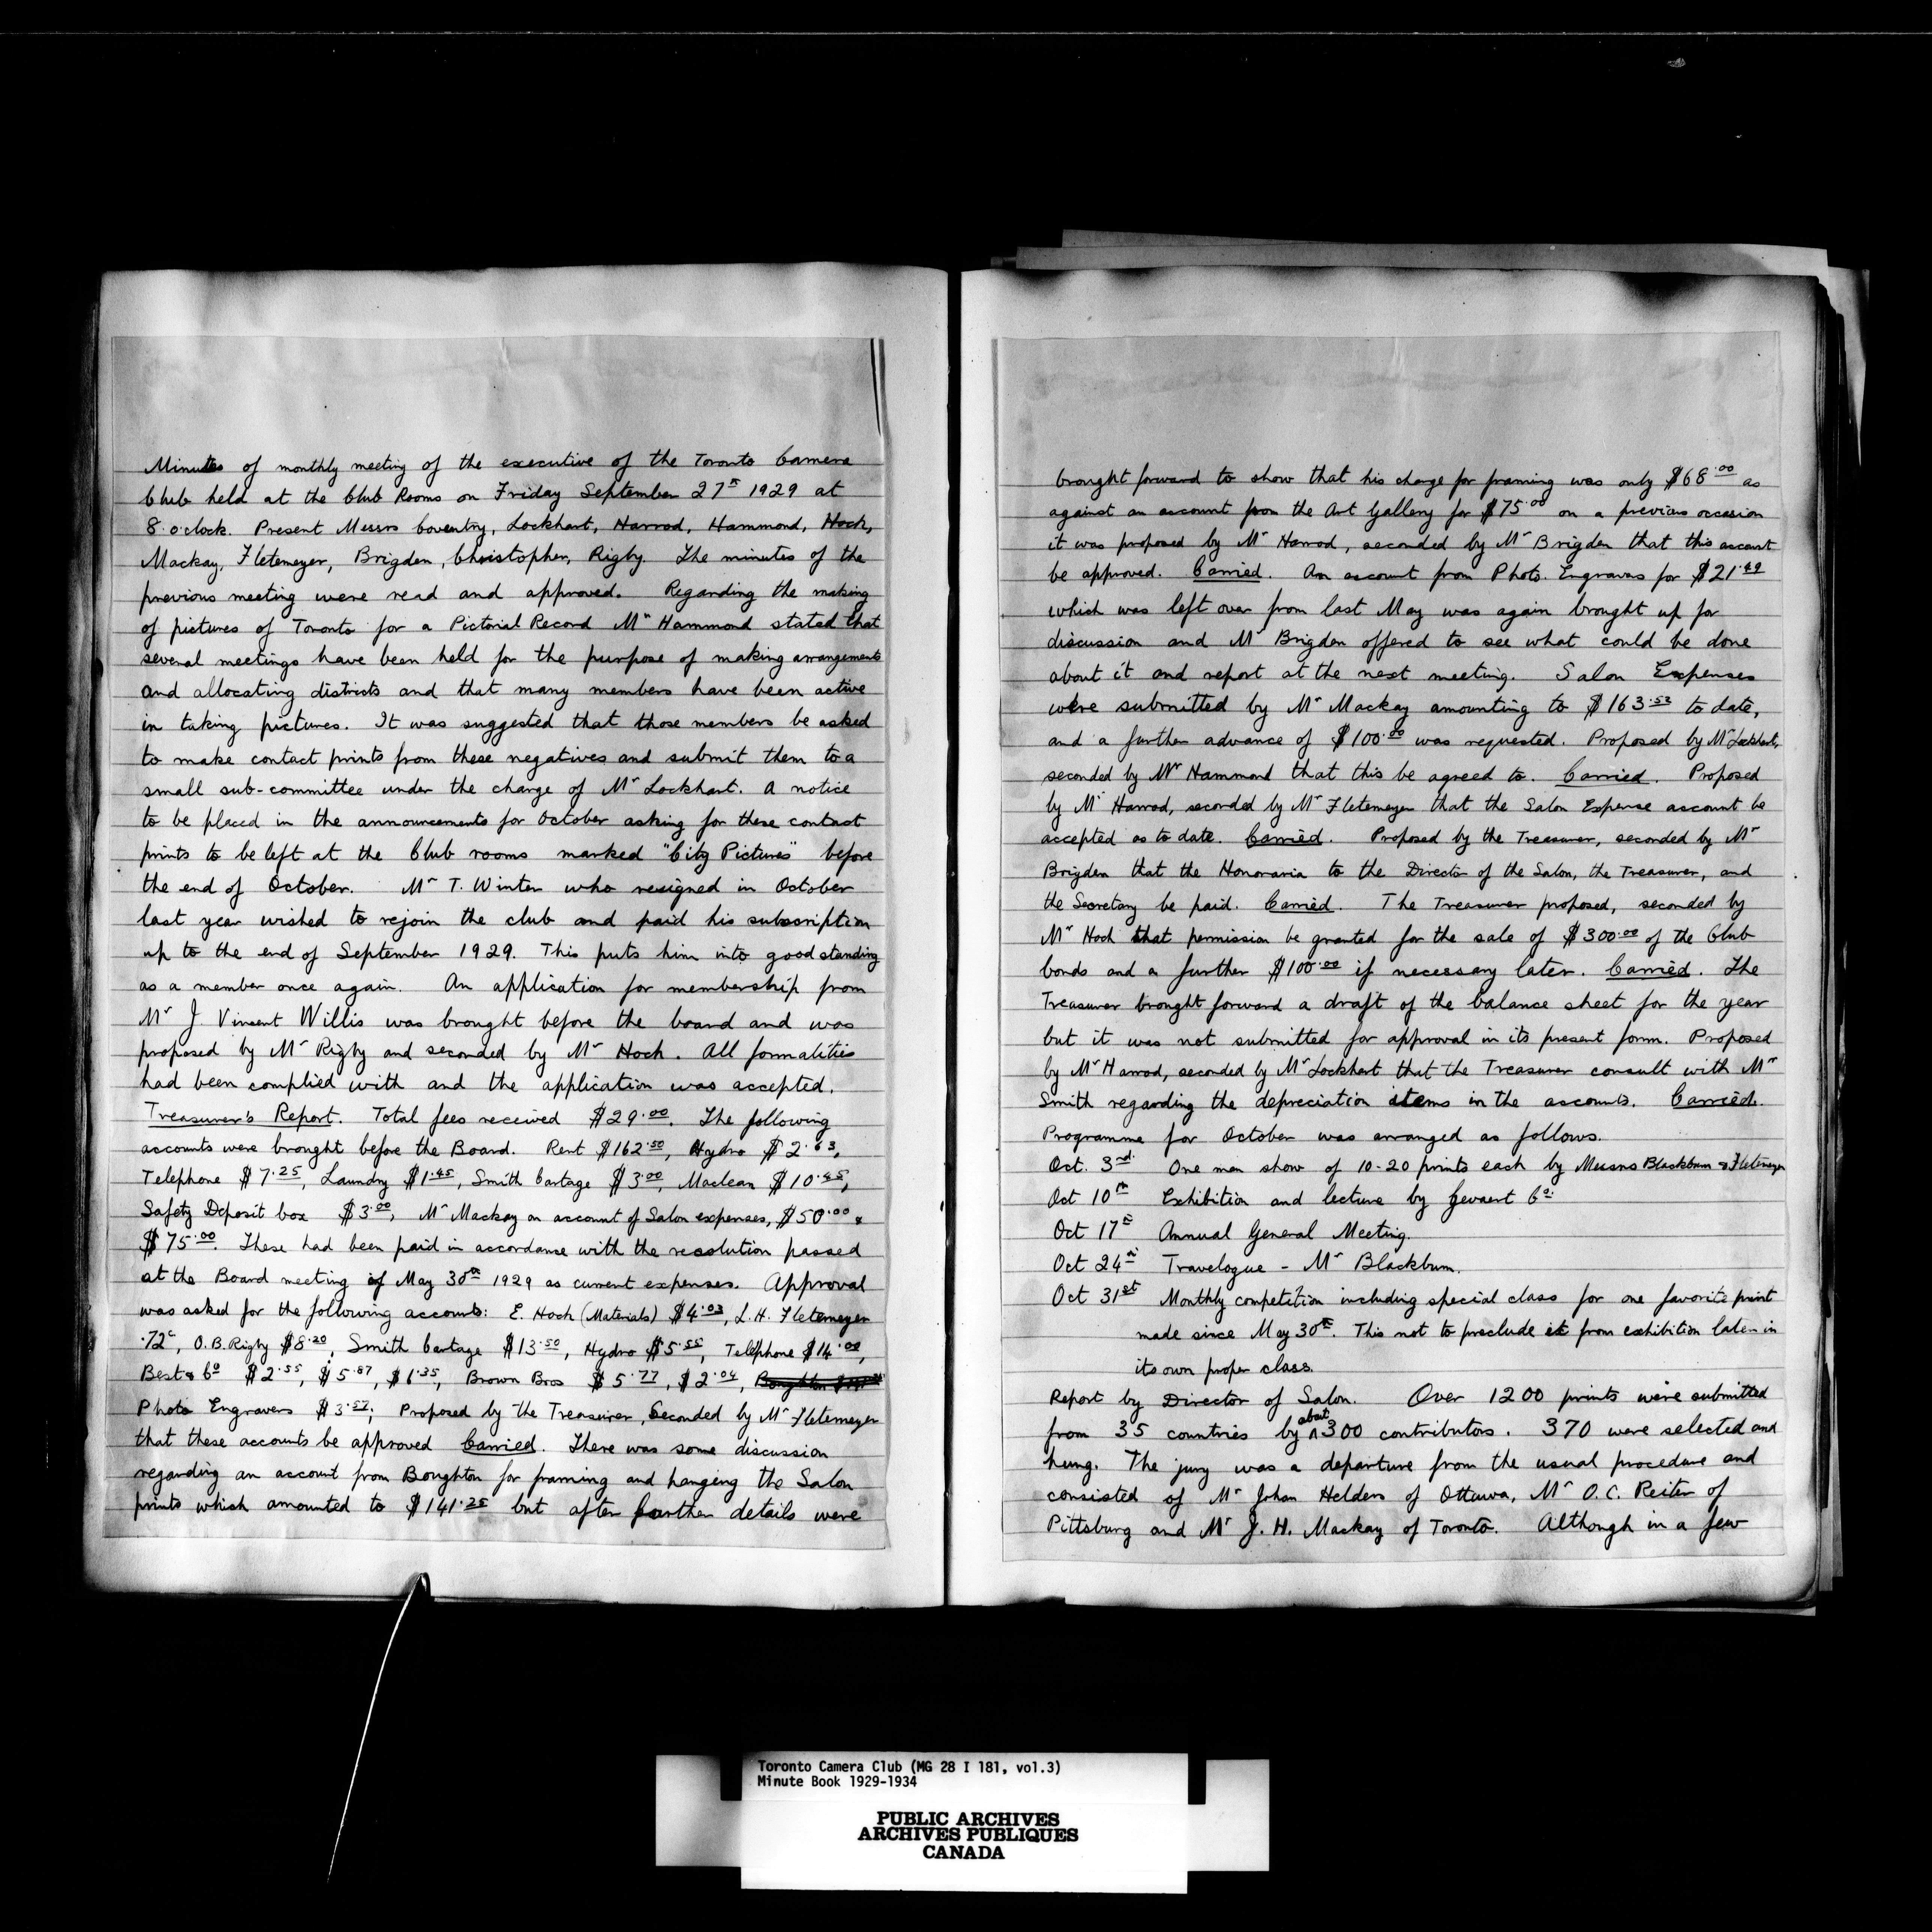 Minutes of monthly meeting of the executive of the Toronto Camera
Club held at the Club Rooms on Friday September 27th 1929 at
8 o'clock. Present Messrs Coventry, Lockhart, Harrod, Hammond, Hoch,
Mackay, Fletemeyer, Brigden, Christopher, Rigby. The minutes of the
previous meeting were read and approved. Regarding the making
of pictures of Toronto for a Pictorial Record Mr Hammond stated that
several meetings have been held for the purpose of making arrangements
and allocating districts and that many members have been active
in taking pictures. It was suggested that those members be asked
to make contact prints from these negatives and submit them to a
small sub-committee under the charge of Mr Lockhart. A notice
to be placed in the announcements for October asking for these contact
prints to be left at the Club rooms marked "City Pictures" before
the end of October. Mr T. Winter who resigned in October
last year wished to rejoin the club and paid his subscription
up to the end of September 1929. This puts him into good standing
as a member once again. An application for membership from
Mr J. Vincent Willis was brought before the board and was
proposed by Mr Rigby and seconded by Mr Hoch. All formalities
had been complied with and the application was accepted.
Treasurer's Report. Total fees received $29.00. The following
accounts were brought before the Board. Rent $162.50, Hydro $2.63,
Telephone $7.25, Laundry $1.45, Smith Cartage $3.00, Maclean $10.45,
Safety Deposit box $3.00, Mr Mackay on account of Salon expenses, $50.00 &
$75.00. These had been paid in accordance with the resolution passed
at the Board meeting of May 30th 1929 as current expenses. Approval
was asked for the following accounts: E. Hoch (Materials) $4.03, L.H. Fletemeyer
.72c, O.B. Rigby $8.20, Smith Cartage $13.50, Hydro $5.55, Telephone $14.00,
Best & Co $2.55, $5.87, $1.35, Brown Bros $5.77, $2.04, Boughton
Photo Engravers $3.57; Proposed by the Treasurer, Seconded by Mr Fletemeyer
that these accounts be approved Carried. There was some discussion
regarding an account from Boughton for framing and hanging the Salon
prints which amounted to $141.25 but after further details were
brought forward to show that his charge for framing was only $68.00 as
against an account from the Art Gallery for $75.00 on a previous occasion
it was proposed by Mr Harrod, seconded by Mr Brigden that this account
be approved. Carried. An account from Photo. Engravers for $21.49
which was left over from last May was again brought up for
discussion and Mr Brigden offered to see what could be done
about it and report at the next meeting. Salon Expenses
were submitted by Mr Mackay amounting to $163.52 to date,
and a further advance of $100.00 was requested. Proposed by Mr Lockhart,
seconded by Mr Hammond that this be agreed to. Carried. Proposed
by Mr Harrod, seconded by Mr Fletemeyer that the Salon Expense account be
accepted as to date. Carried. Proposed by the Treasurer, seconded by Mr
Brigden that the Honoraria to the Director of the Salon, the Treasurer, and
the Secretary be paid. Carried. The Treasurer proposed, seconded by
Mr Hoch that permission be granted for the sale of $300.00 of the Club
bonds and a further $100.00 if necessary later. Carried. The
Treasurer brought forward a draft of the balance sheet for the year
but it was not submitted for approval in its present form. Proposed
by Mr Harrod, seconded by Mr Lockhart that the Treasurer consult with Mr
Smith regarding the depreciation items in the accounts. Carried.
Programme for October was arranged as follows.
Oct. 3rd. One man show of 10-20 prints each by Messrs Blackburn & Fletemeyer
Oct 10th Exhibition and lecture by Gevaert Co.
Oct 17th Annual General Meeting.
Oct 24th Travelogue - Mr Blackburn.
Oct 31st Monthly competition including special class for one favorite print
made since May 30th. This not to preclude it from exhibition later in
its own proper class.
Report by Director of Salon. Over 1200 prints were submitted
from 35 countries by about 300 contributors. 370 were selected and
hung. The jury was a departure from the usual procedure and
consisted of Mr Johan Helders of Ottawa, Mr O.C. Reiter of
Pittsburg and Mr J.H. Mackay of Toronto. Although in a few
Toronto Camera Club (MG 28 I 181, vol.3)
Minute Book 1929-1934
PUBLIC ARCHIVES
ARCHIVES PUBLIQUES
CANADA